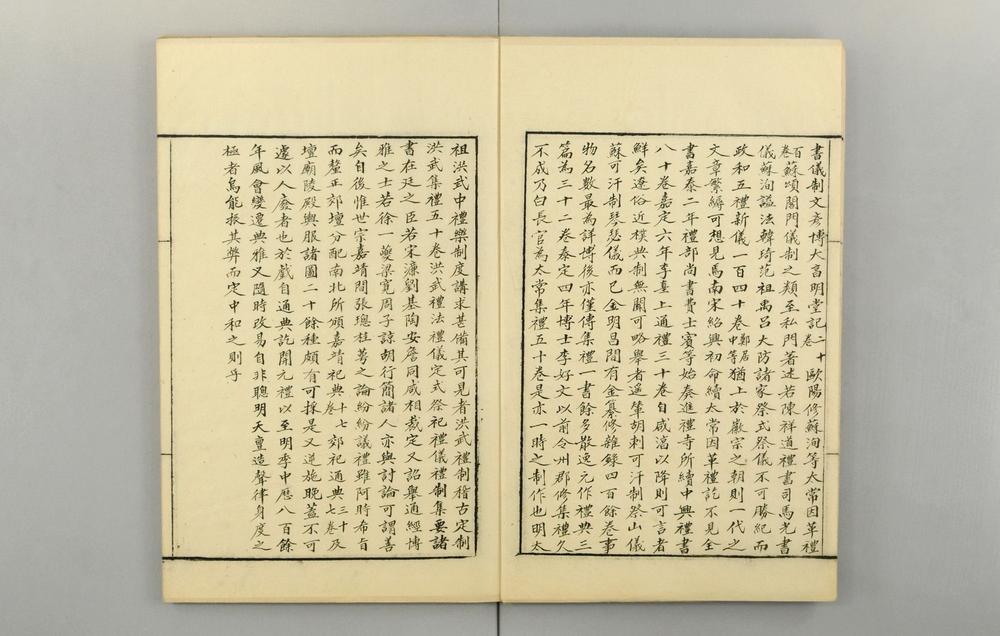 書儀制文彥博大昌明堂記二十卷歐陽修蘇洵等太常因革禮
百卷蘇頌閤門儀制之類至私門著述若陳祥道禮書司馬光書
儀蘇洵謚法韓琦范祖禹呂大防諸家祭式祭儀不可勝紀而
政和五禮新儀一百四十卷鄭居中等猶上於徽宗之朝則一代之
文章繁縟可想見焉南宋紹興初命續太常因革禮訖不見全
書嘉泰二年禮部尚書費士寅等始奏進禮寺所續中興禮書
八十卷嘉定六年李𡌴上通禮三十卷自咸淳以降則可言者
鮮矣遼俗近樸典制無闕可略舉者遥輦胡剌可汗制祭山儀
蘇可汗制琴瑟儀而已金明昌間有金纂修雜錄四百餘卷事
物名數最為詳博後亦僅傳集禮一書餘多散逸元作禮典三
篇為三十二卷泰定四年博士李好文以前令州郡修集禮久
不成乃白長官為太常集禮五十卷是亦一時之制作也明太
祖洪武中禮樂制度講求甚備其可見者洪武禮制稽古定制
洪武集禮五十卷洪武禮法禮儀定式祭祀禮儀禮制集要諸
書在廷之臣若宋濂劉基陶安詹同咸相裁定又詔舉通經博
雅之士若徐一夔梁寅周子諒胡行簡諸人亦與討論可謂善
矣自後惟世宗嘉靖間張璁桂萼之論紛紛議禮雖阿時希旨
而釐正郊壇分配南北所頒嘉靖祀典十七卷郊祀通典三十七卷及
壇廟陵殿輿服諸圖二十餘種頗有可採是又逆施晚蓋不可
遽以人廢者也於戲自通典訖開元禮以至明季中歷八百餘
年風會變遷典雅又隨時改易自非聰明天亶造聲律身度之
極者烏能振其弊而定中和之則乎